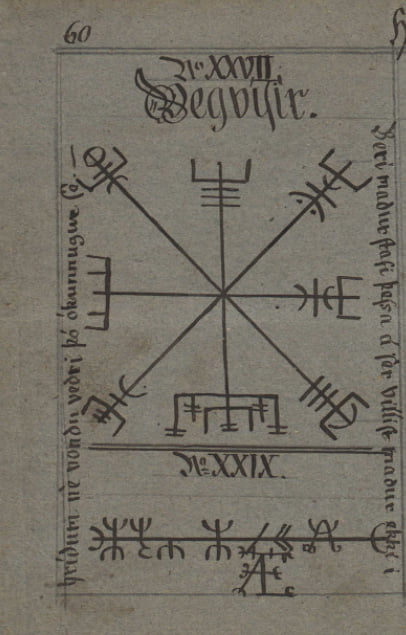 60
No XXVII.
Vegvisir.
Beri madur stafi þessa á sér villist madur ekki i
hridum né vondu vedri þó ókunnugur sé
No XXIX.